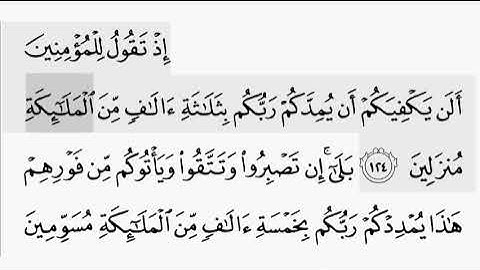 إِذْ تَقُولُ لِلْمُؤْمِنِينَ
أَلَن يَكْفِيَكُمْ أَن يُمِدَّكُمْ رَبُّكُم بِثَلَاثَةِ ءَالَافٍ مِّنَ الْمَلَائِكَةِ
مُنزَلِينَ ١٢٤ بَلَىٰ ۚ إِن تَصْبِرُوا وَتَتَّقُوا وَيَأْتُوكُم مِّن فَوْرِهِمْ
هَٰذَا يُمْدِدْكُمْ رَبُّكُم بِخَمْسَةِ ءَالَافٍ مِّنَ الْمَلَائِكَةِ مُسَوِّمِينَ